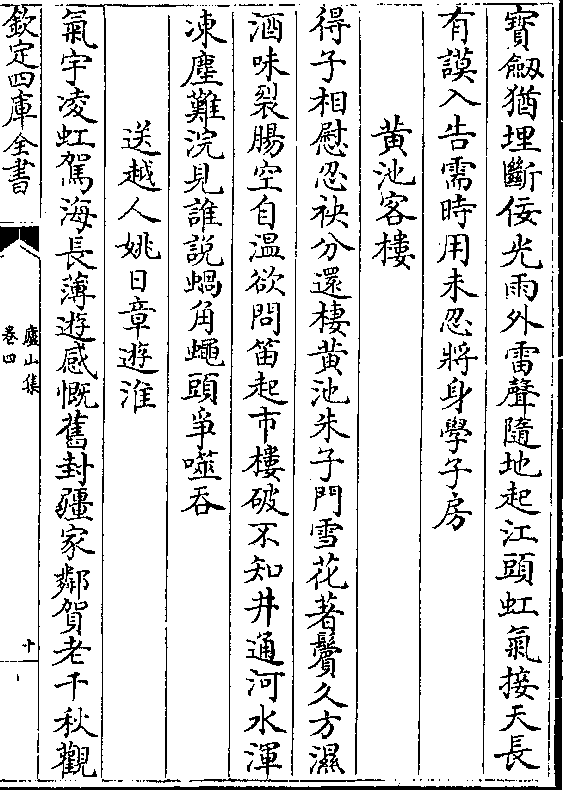 寳劒猶埋斷佞光雨外雷聲隨地起江頭虹氣接天長
有謨入告需時用未忍將身學子房
黄池客樓
得子相慰忍袂分還棲黄池朱子門雪花著鬢久方濕
酒味裂腸空自溫欲問笛起市樓破不知井通河水渾
凍塵難浣見誰説蝸角蠅頭爭噬吞
送越人姚日章遊淮
氣宇凌虹駕海長薄遊感慨舊封疆家鄰賀老千秋觀
欽定四庫全書
廬山集
卷四
十